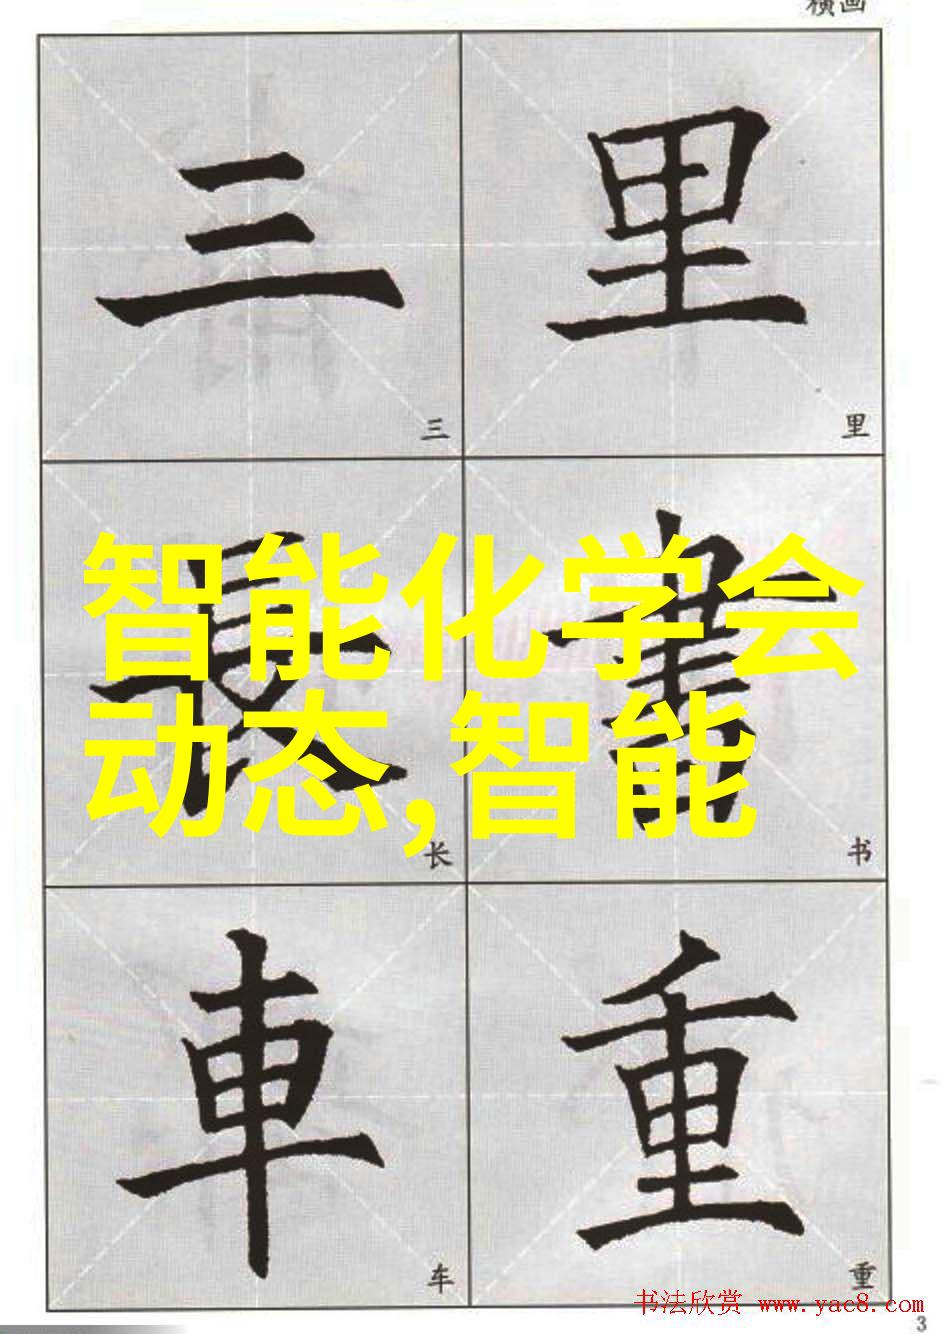 横画
三 里
三 里
長 書
智能化学会
动态,智能
长 书
車 重
车 重
书法欣赏 www.yac8.com
3